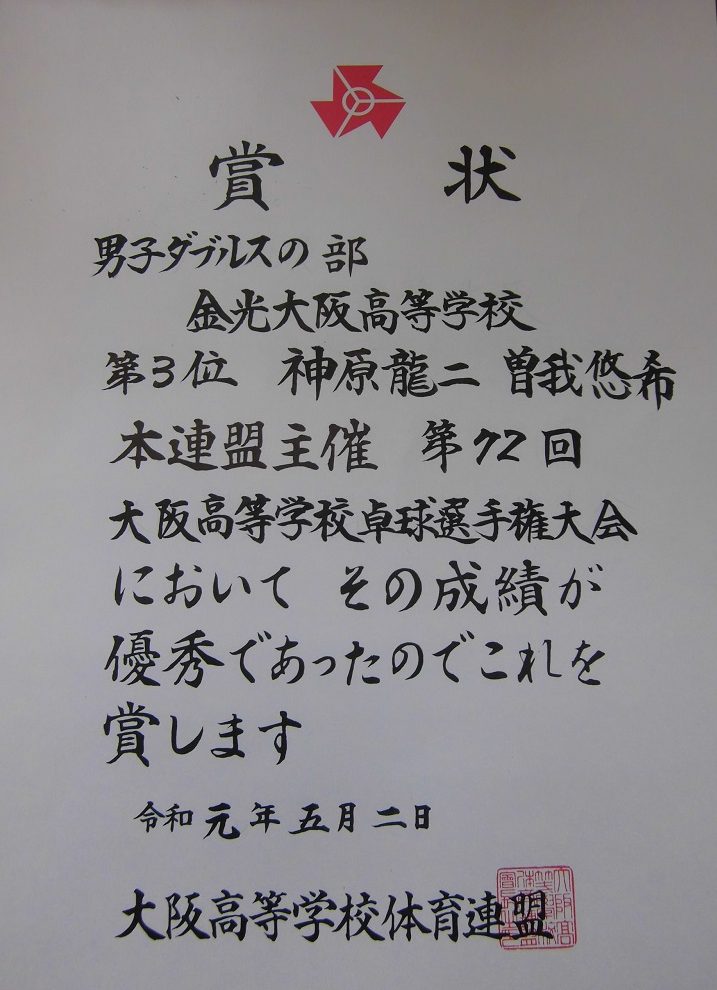 賞 状
男子ダブルスの部
金光大阪高等学校
第3位 神原龍二 曽我悠希
本連盟主催 第72回
大阪高等学校卓球選手権大会
において その成績が
優秀であったのでこれを
賞します
令和元年五月二日
大阪高等学校体育連盟